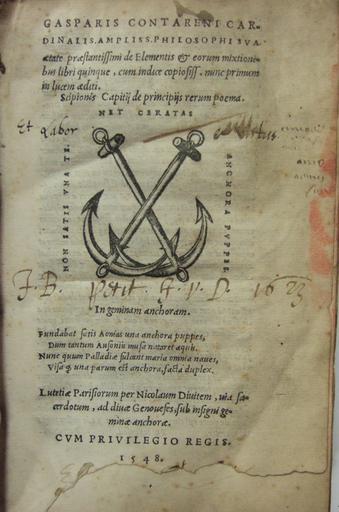 GASPARIS CONTARENI CAR-
DINALIS.AMPLISS.PHILOSOPHI SVA
ætate præstantissimi de Elementis & eorum mixtioni-
bus libri quinque, cum indice copiosiss. nunc primum
in lucem æditi.
Scipionis Capitij de principijs rerum poema.
NET CERATAS
Et Labor
NON SATIS VNA TE.
ANCHORA PVPPES.
J. B. Petit 1623
In geminam anchoram.
Fundabat satis Aonias una anchora puppes,
Dum tantum Ausoniis musa nataret aquis.
Nunc quum Palladiæ sulcant maria omnia naues,
Visa & una parum est anchora, facta duplex.
Lutetiæ Parisiorum per Nicolaum Diuitem, uia sa-
cerdotum, ad diuæ Genoueses, sub insigni ge-
minæ anchoræ.
CVM PRIVILEGIO REGIS.
1548.